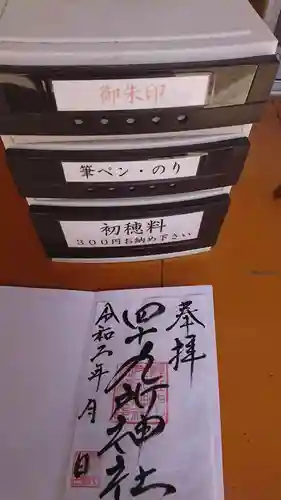 御朱印
筆ペン・のり
初穂料
300円お納め下さい
奉拝
四十九所神社
令和六年 月 日